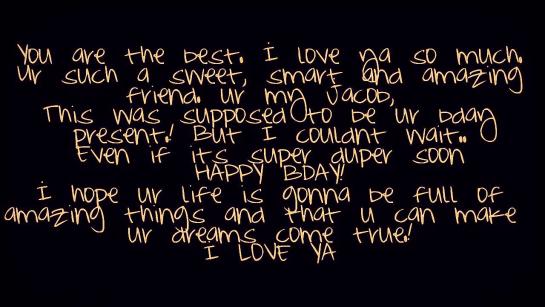 You are the best. i love ya so much.
ur such a sweet, smart and amazing
friend. ur my Jacob,
This was supposed to be ur bday
present! But I couldnt wait..
Even if its super duper soon
HAPPY BDAY!
i hope ur life is gonna be full of
amazing things and that u can make
ur dreams come true!
i LOVE YA